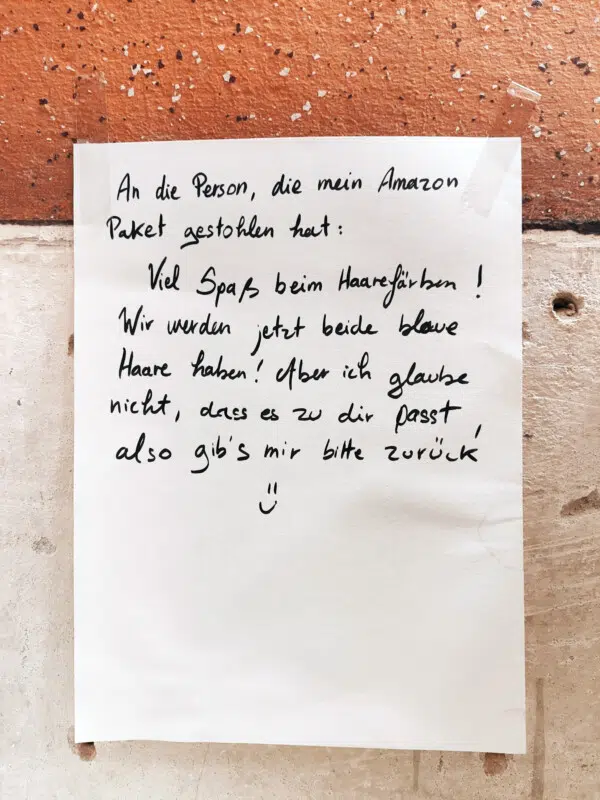 An die Person, die mein Amazon
Paket gestohlen hat:
Viel Spaß beim Haarefärben!
Wir werden jetzt beide blaue
Haare haben! Aber ich glaube
nicht, dass es zu dir passt,
also gib's mir bitte zurück